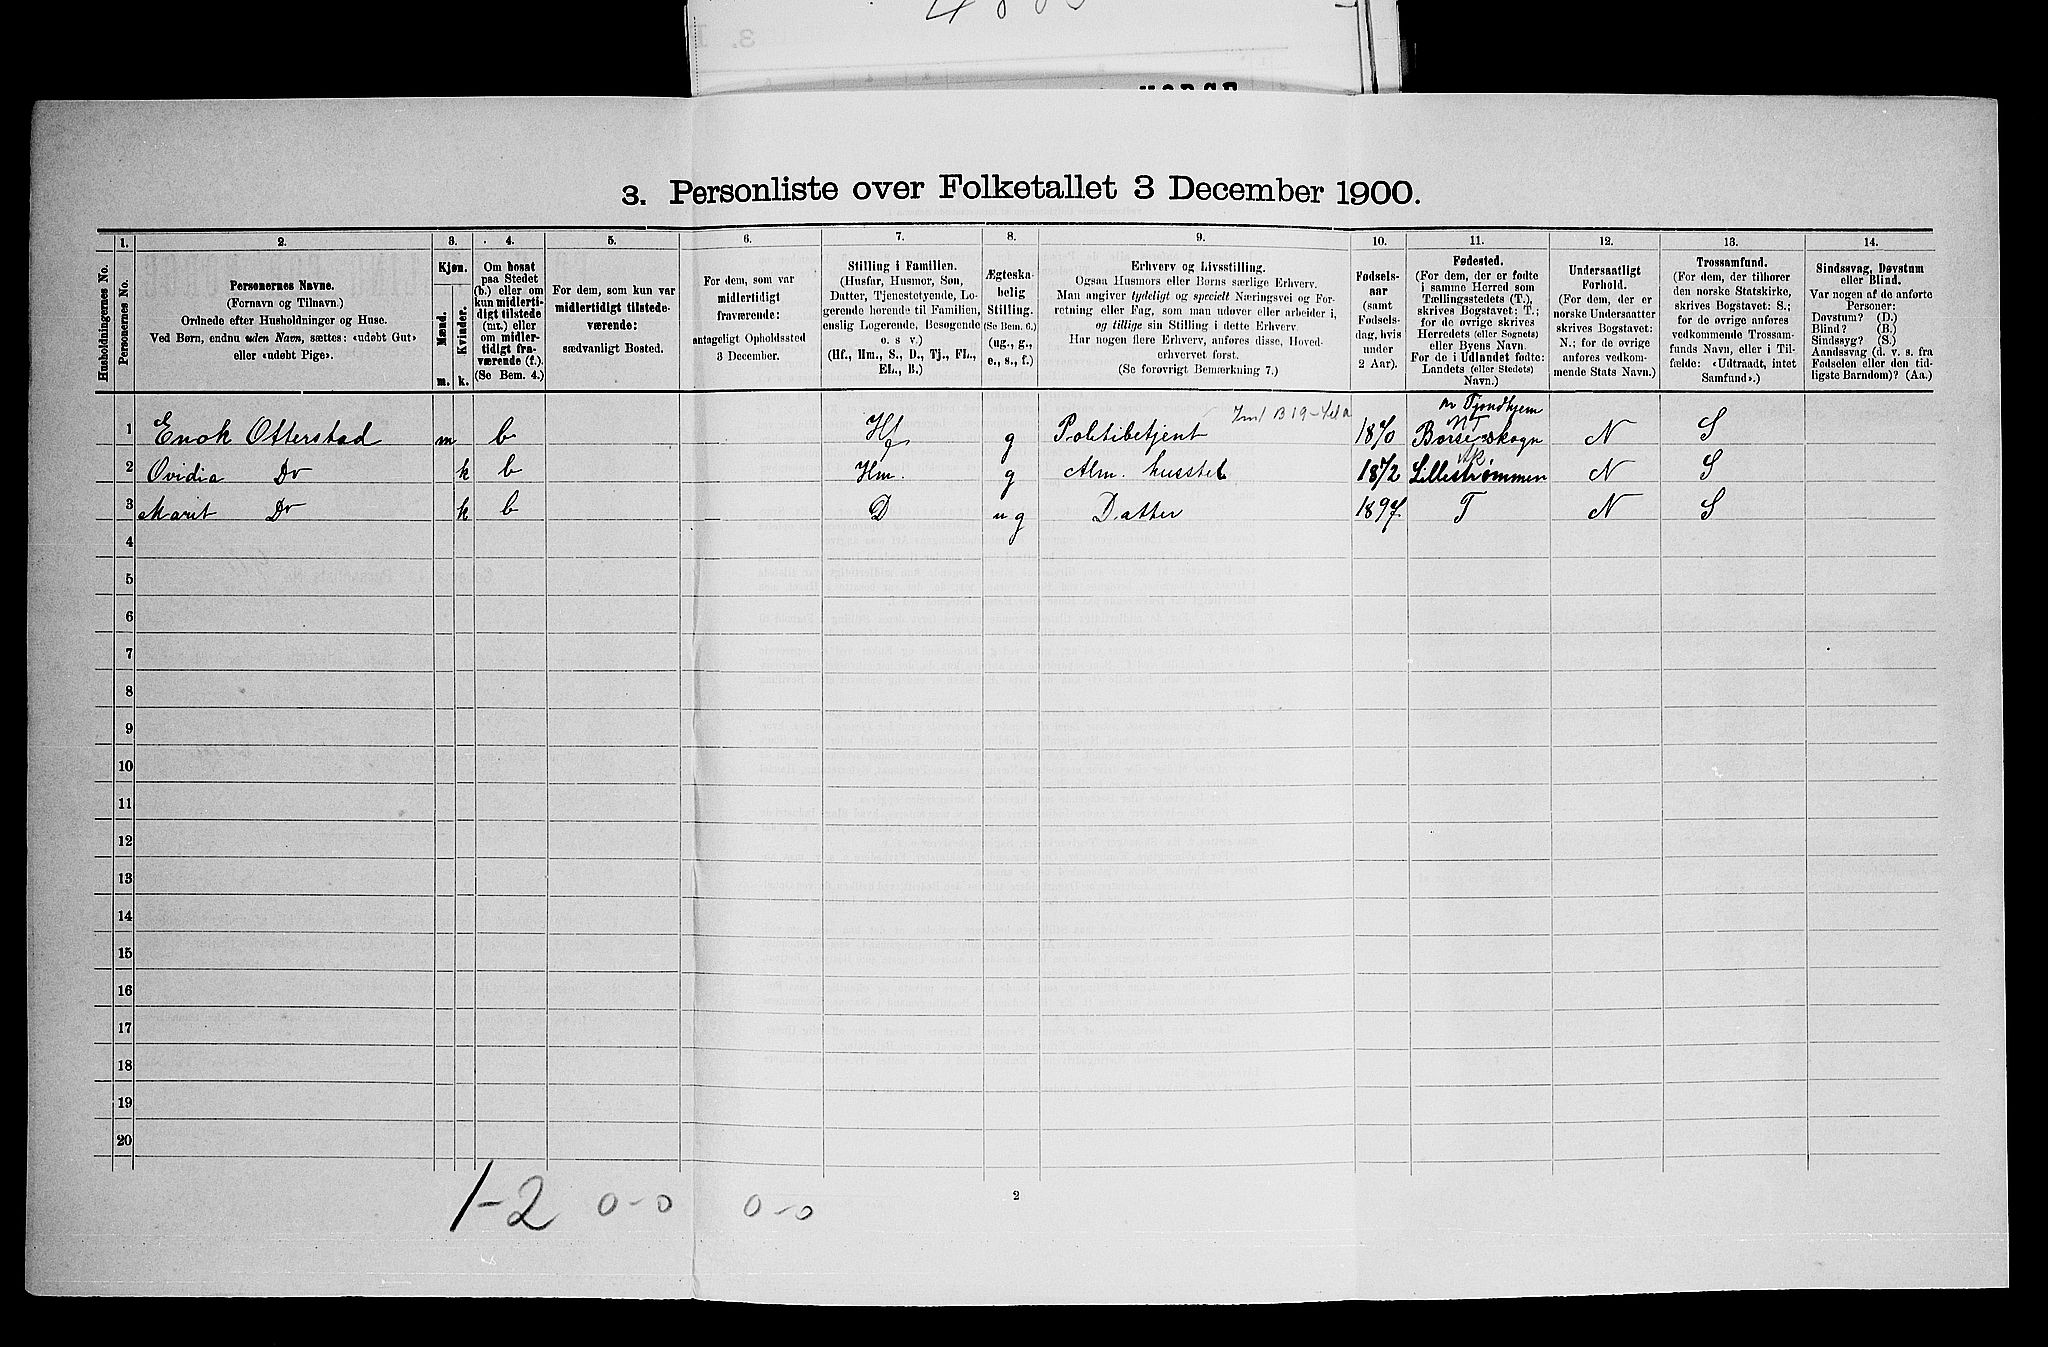 3. Personliste over Folketallet 3 December 1900.
1. 2. 3. 4. 5. 6. 7. 8. 9. 10. 11. 12. 13. 14.
Husholdningernes No.
Personernes No.
Personernes Navne.
(Fornavn og Tilnavn.)
Ordnede efter Husholdninger og Huse.
Ved Børn, endnu uden Navn, sættes: «udøbt Gut»
eller «udøbt Pige».
Kjøn.
Mænd.
Kvinder.
m. k.
Om bosat
paa Stedet
(b.) eller om
kun midlerti-
digt tilstede
(mt.) eller
om midler-
tidigt fra-
værende (f.).
(Se Bem. 4.)
For dem, som kun var
midlertidigt tilstede-
værende:
sædvanligt Bosted.
For dem, som var
midlertidigt
fraværende:
antageligt Opholdssted
3 December.
Stilling i Familien.
(Husfar, Husmor, Søn,
Datter, Tjenestetyende, Lo-
gerende hørende til Familien,
enslig Logerende, Besøgende
o. s. v.)
(Hf., Hm., S., D., Tj., FL.,
EL., B.)
Ægteska-
belig
Stilling.
(Se Bem. 6.)
(ug., g.,
e., s., f.)
Erhverv og Livsstilling.
Ogsaa Husmors eller Børns særlige Erhverv.
Man angiver tydeligt og specielt Næringsvei og For-
retning eller Fag, som man udøver eller arbeider i,
og tillige sin Stilling i dette Erhverv.
Har nogen flere Erhverv, anføres disse, Hoved-
erhvervet først.
(Se forøvrigt Bemærkning 7.)
Fødsels-
aar
(samt
Fødsels-
dag, hvis
under
2 Aar).
Fødested.
(For dem, der er fødte
i samme Herred som
Tællingsstedets (T.),
skrives Bogstavet: T.;
for de øvrige skrives
Herredets (eller Sognets)
eller Byens Navn.
For de i Udlandet fødte:
Landets (eller Stedets)
Navn.)
Undersaatligt
Forhold.
(For dem, der er
norske Undersaatter
skrives Bogstavet:
N.; for de øvrige
anføres vedkom-
mende Stats Navn.)
Trossamfund.
(For dem, der tilhører
den norske Statskirke,
skrives Bogstavet: S.;
for de øvrige anføres
vedkommende Trossam-
funds Navn, eller i Til-
fælde: «Udtraadt, intet
Samfund».)
Sindssvag, Døvstum
eller Blind.
Var nogen af de anførte
Personer:
Døvstum? (D.)
Blind? (B.)
Sindssyg? (S.)
Aandssvag (d. v. s. fra
Fødselen eller den tid-
ligste Barndom)? (Aa.)
1 Enok Otterstad m b Hf g Politibetjent 1870 N S
2 Ovidia Do k b Hm. g Alm. husstel 1872 Lillestrømmen N S
3 Marit Do k b D ug Datter 1897 T N S
4
5
6
7
8
9
10
11
12
13
14
15
16
17
18
19
20
1-2 0-0 0-0
2